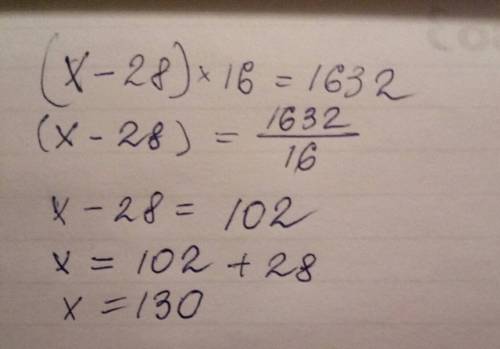 (x - 28) × 16 = 1632
(x - 28) = 1632/16
x - 28 = 102
x = 102 + 28
x = 130